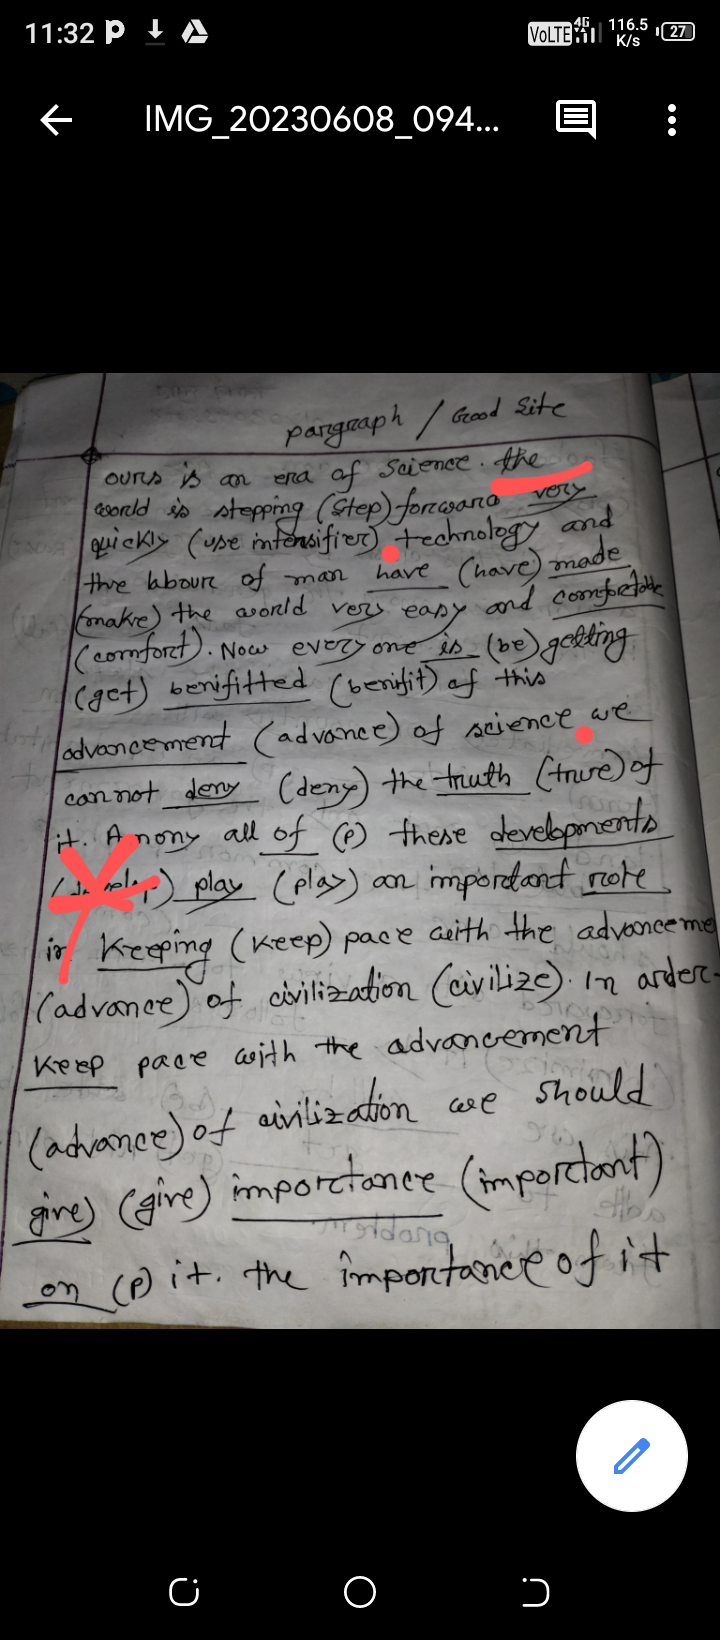 11:32
VoLTE 4G 116.5 K/s 27
IMG_20230608_094...
pargraph / Good Site
ours is an era of science. the
world is stepping (step) forward very
quickly (use intensifier). technology and
the labour of man have (have) made
(make) the world very easy and comfortable
(comfort). Now every one is (be) getting
(get) benifitted (benifit) of this
advancement (advance) of science. we
cannot deny (deny) the truth (true) of
it. Amony all of (p) these developments
(develop) play (play) an important role
in keeping (keep) pace with the advanceme
(advance) of civilization (civilize). In order-
keep pace with the advancement
(advance) of civilization we should
give) (give) importance (important)
on (p) it. the importance of it